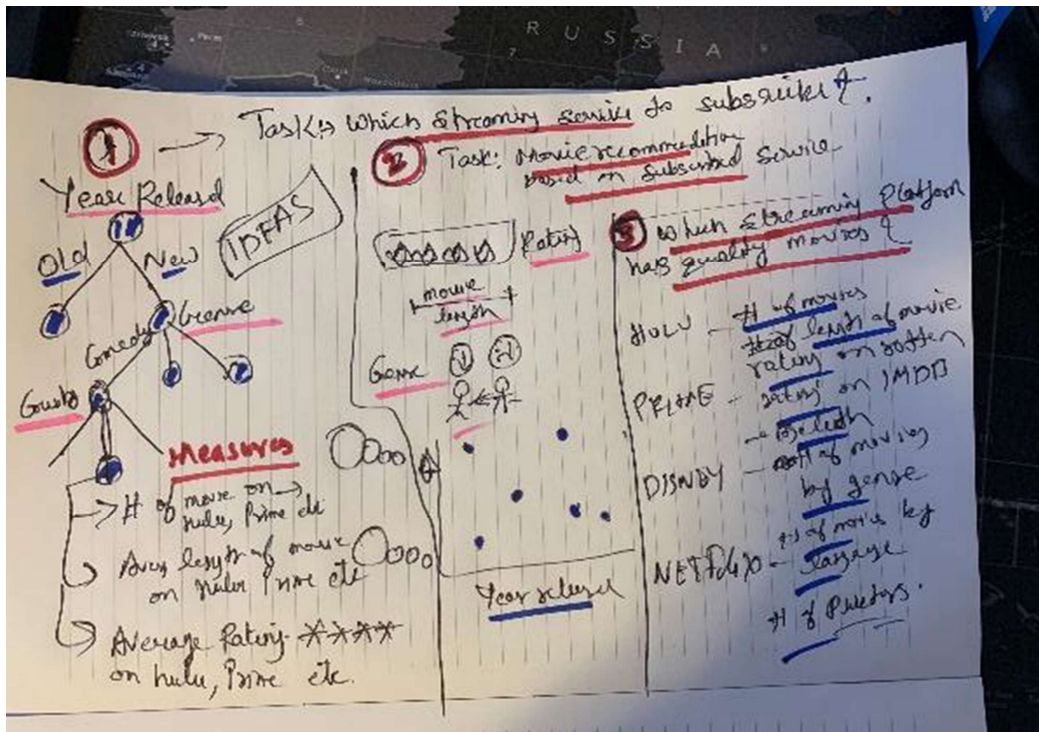 RUSSIA
1
Task: Which streaming service to subscribe?
Year Released
Old
New
IDEAS
Comedy
Genre
Measures
# of movie on
hulu, Prime etc
length of movie
on hulu Prime etc
Average Rating
on hulu, Prime etc.
2
Task: Movie recommendation
based on Subscribed Service
Rating
movie
length
Genre
Year released
3
Which Streaming Platform
has quality movies?
HULU - # of movies
length of movie
rating on rotten
PRIME - rating on IMDB
DISNEY - # of movies
by genre
NETFLIX - # of movies by
language
# of Directors.